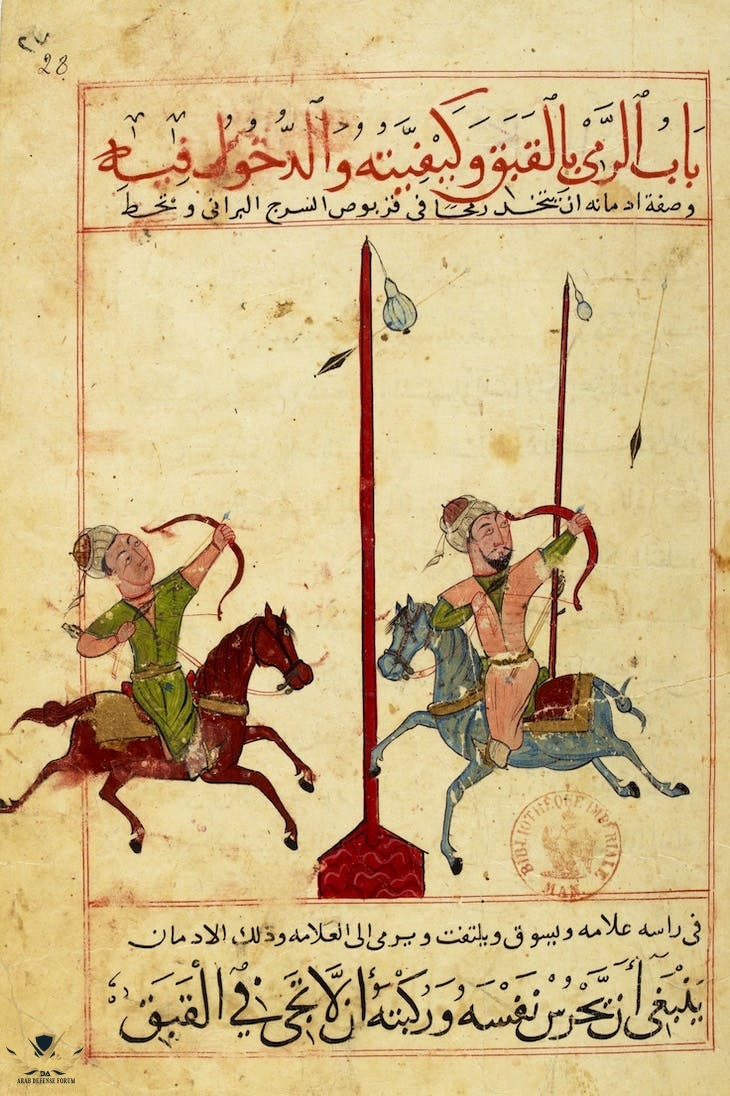 ٢٧
28
بَابُ الرَّمْيِ بِالْقَبَقِ وَكَيْفِيَّتِهِ وَالدُّخُولِ فِيهِ
وصفة ادمانه ان يتخذ رمحًا في قربوص السرج البراني ويحط
في راسه علامه ويسوق ويلتفت ويرمى الى العلامه وذلك الادمان
يَنْبَغِي أَنْ يَحْرُسَ نَفْسَهُ وَرُكْبَتَهُ أَنْ لَا تَجِيَ فِي الْقَبَقِ
BIBLIOTHÈQUE IMPÉRIALE
MAN.
ARAB DEFENSE FORUM